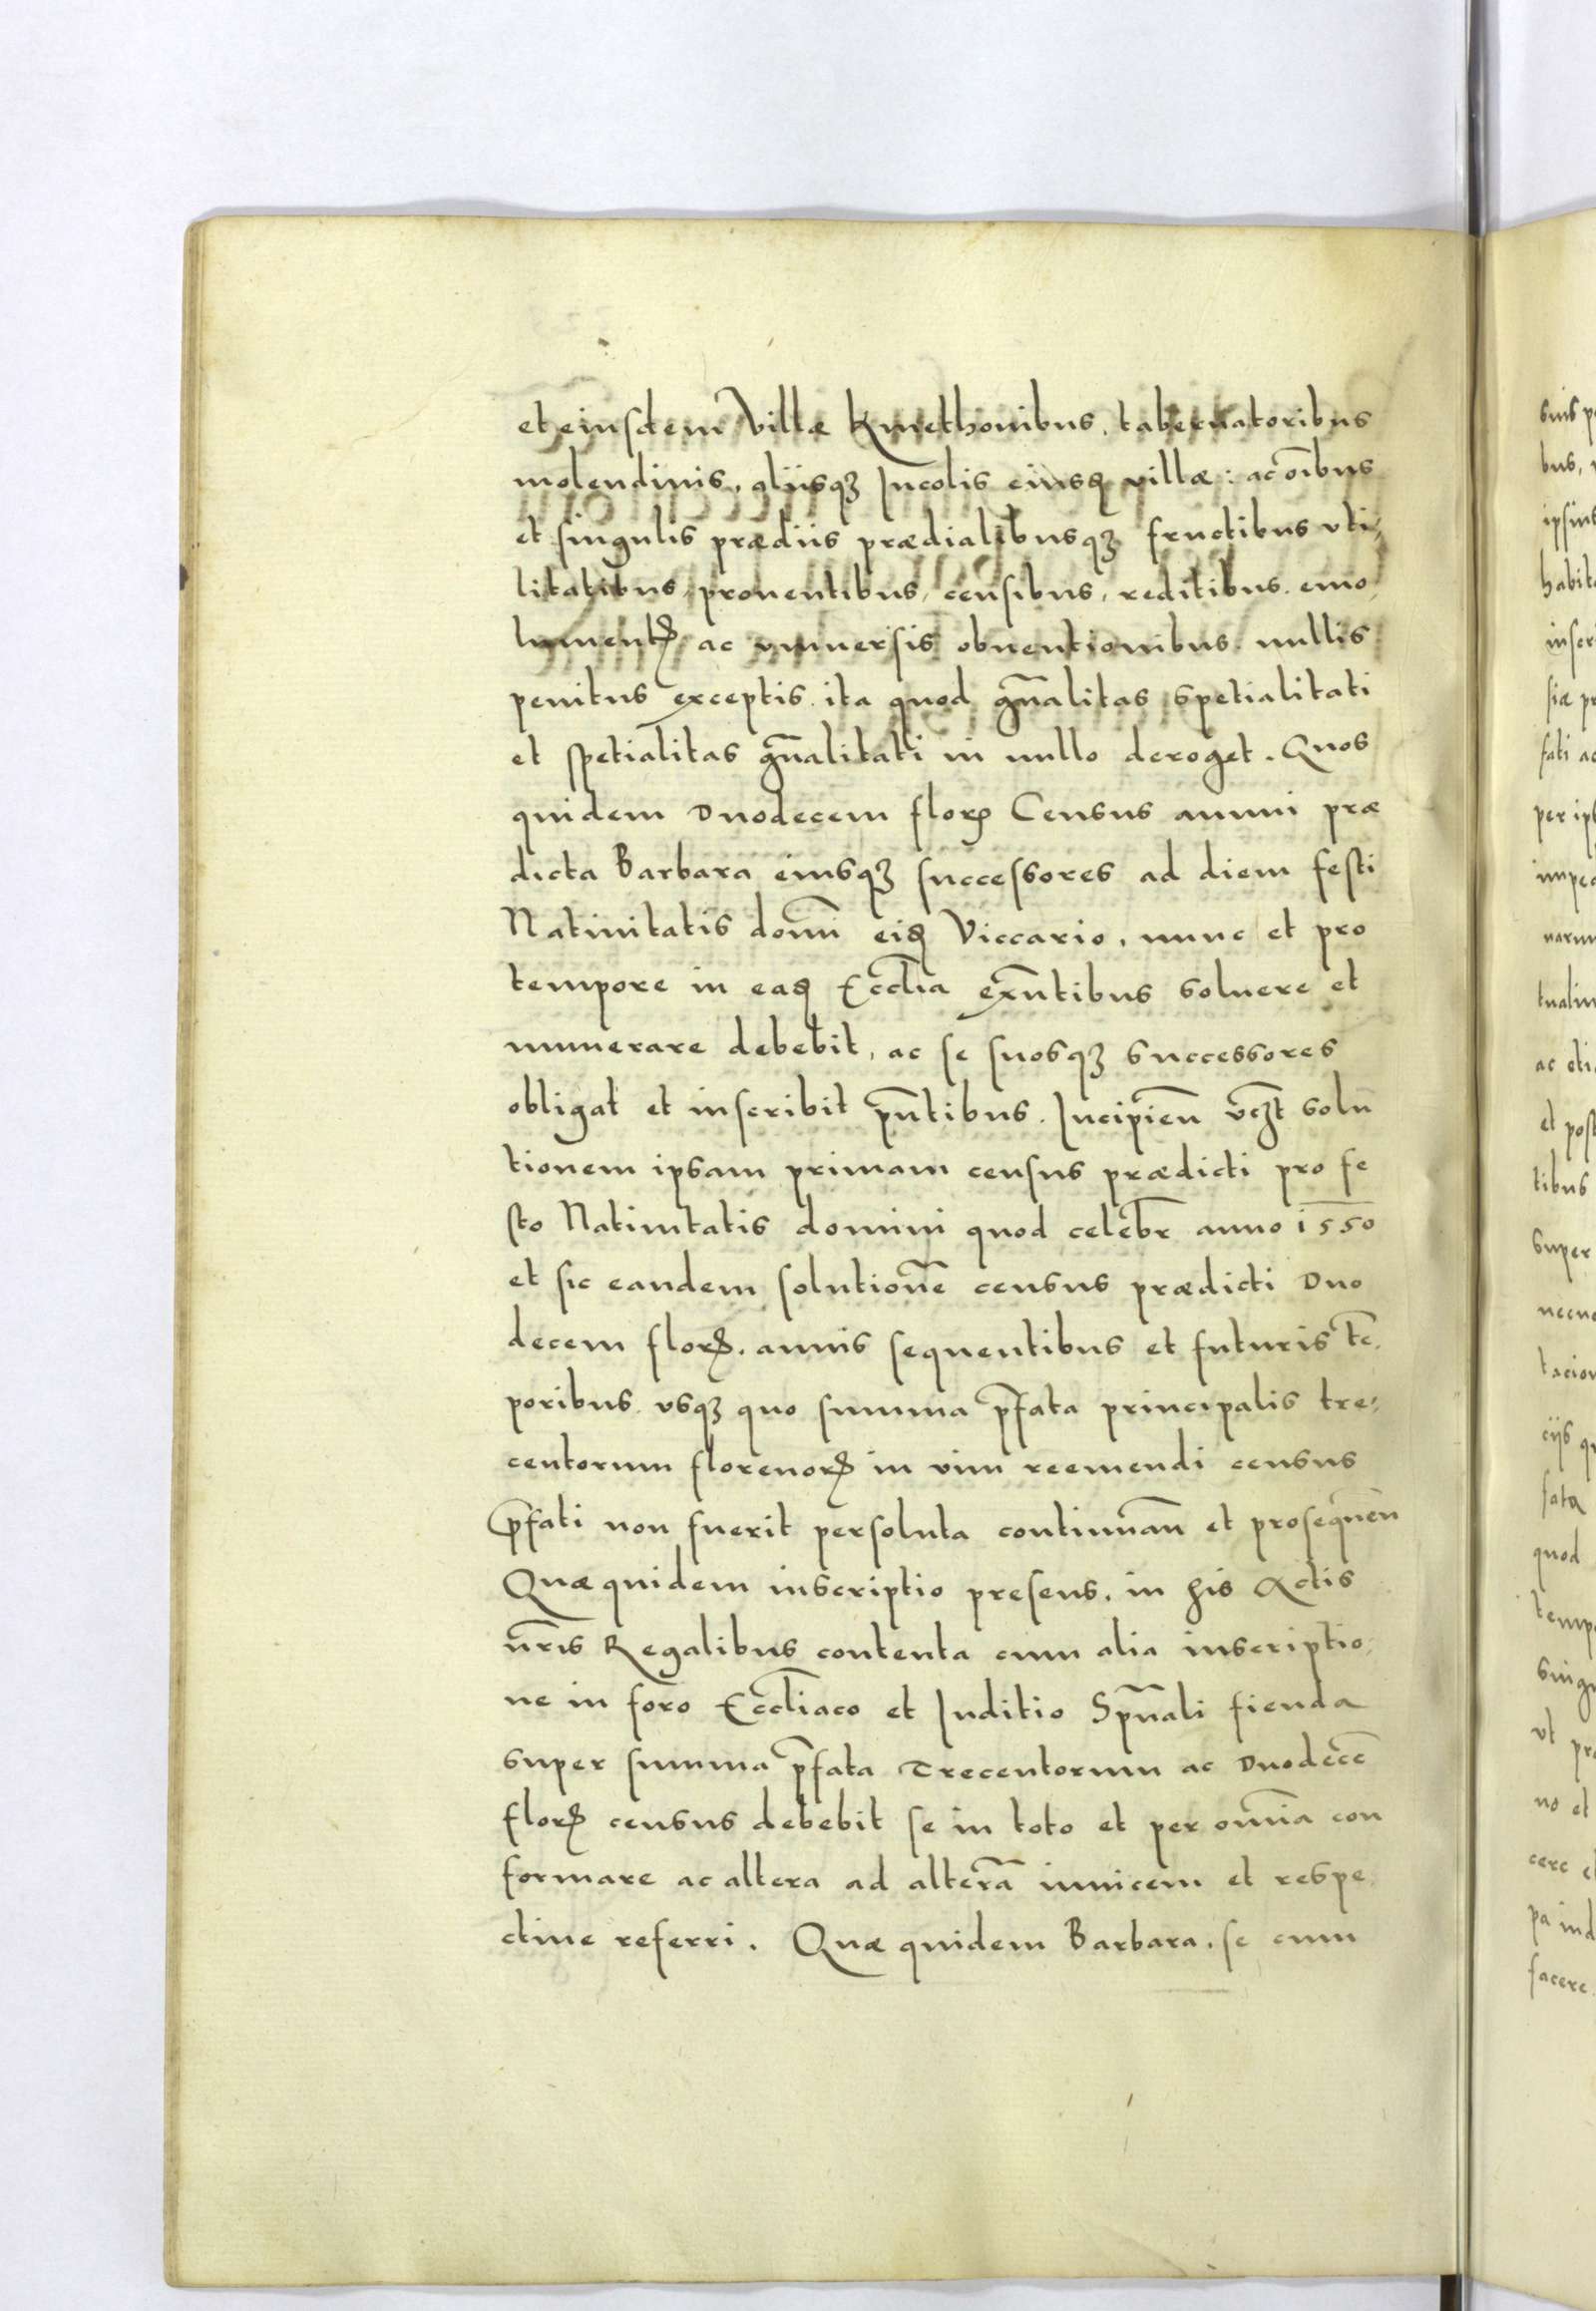 et eiusdem Villæ Kmethonibus, tabernatoribus
molendinis, alijsqꝫ Incolis eiusꝺ villæ: ac oı̄bus
et singulis prædiis prædialibusqꝫ fructibus vti-
litatibus, prouentibus, censibus, reditibus. emo
lumentꝭ ac vniuersis obuentionibus. nullis
penitus exceptis. ita quod gn̄alitas spetialitati
et spetialitas gn̄alitati in nullo deroget. Quos
quidem Duodecem florꝭ Census annui præ
dicta Barbara eiusqꝫ successores ad diem festi
Natiuitatis domī eiꝺ Viccario, nunc et pro
tempore in eaꝺ Eccl̄ia exn̄tibus soluere et
numerare debebit, ac se suosqꝫ successores
obligat et inscribit pn̄tibus. Incipien̄ vcꝫt̄ solu
tionem ipsam primam census prædicti pro fe
sto Natiuitatis domini quod celebr̄ anno 1550
et sic eandem solutionē census prædicti Duo
decem florꝭ. annis sequentibus et futuris tē
poribus. vsqꝫ quo summa p̄fata principalis tre-
centorum florenorꝭ in vim reemendi census
p̄fati non fuerit persoluta continuan̄ et prosequen̄
Quæ quidem inscriptio presens. in his Actis
nr̄is Regalibus contenta cum alia inscriptio
ne in foro Eccl̄iaco et Iuditio Spūali fienda
super summa p̄fata Trecentorum ac Duodecē
florꝭ census debebit se in toto et per omnīa con
formare ac altera ad alterā inuicem et respe
ctiue referri. Quæ quidem Barbara. se cum